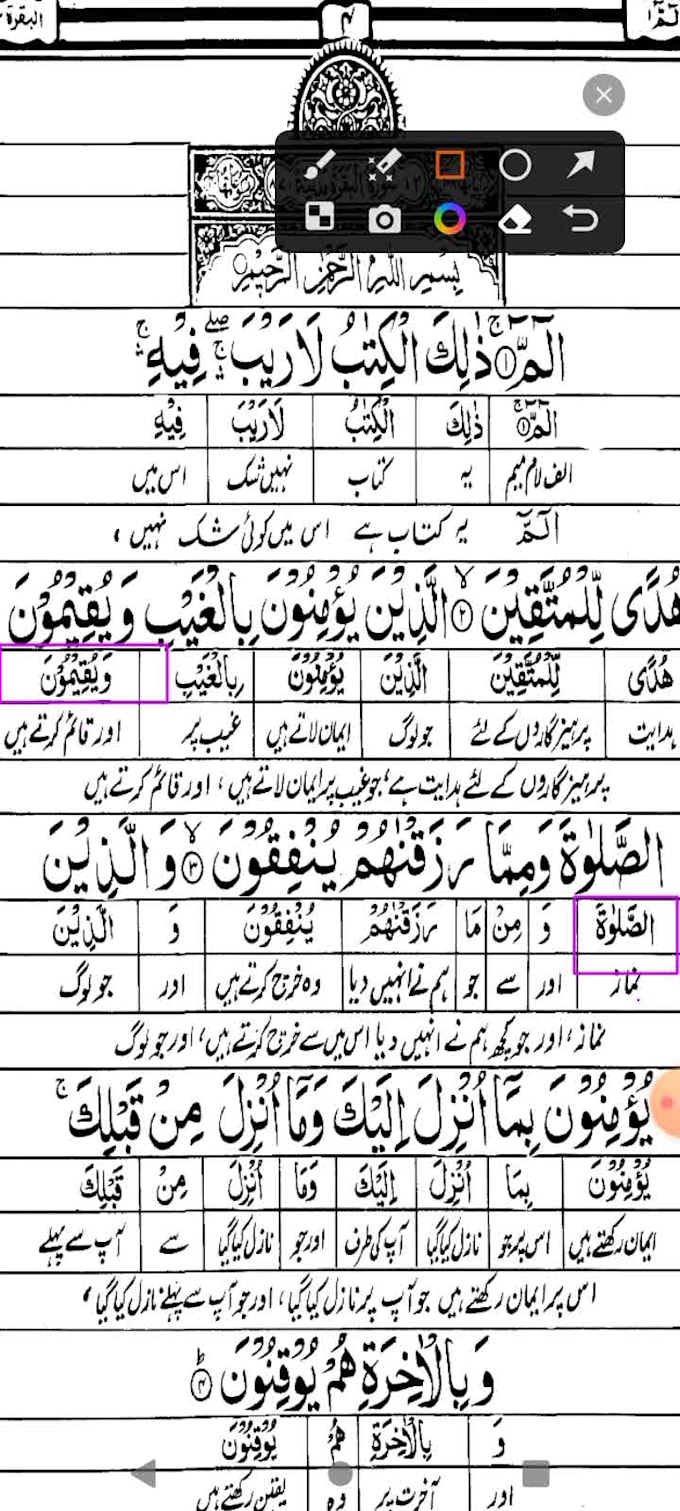 الٓمّٓا ۴ البقرة
بِسْمِ اللّٰهِ الرَّحْمٰنِ الرَّحِيْمِ
الٓمّٓ ۚ﴿۱﴾ ذٰلِكَ الْكِتٰبُ لَا رَيْبَ ۛۖۚ فِيْهِ ۛۚ
الٓمّٓ ۚ﴿۱﴾ ذٰلِكَ الْكِتٰبُ لَارَيْبَ فِيْهِ
الف لام میم یہ کتاب نہیں شک اس میں
الٓمّٓ یہ کتاب ہے اس میں کوئی شک نہیں ،
هُدًى لِّلْمُتَّقِيْنَ ۙ﴿۲﴾ الَّذِيْنَ يُؤْمِنُوْنَ بِالْغَيْبِ وَيُقِيْمُوْنَ
هُدًى لِّلْمُتَّقِيْنَ الَّذِيْنَ يُؤْمِنُوْنَ بِالْغَيْبِ وَيُقِيْمُوْنَ
ہدایت پرہیزگاروں کے لئے جو لوگ ایمان لاتے ہیں غیب پر اور قائم کرتے ہیں
پرہیزگاروں کے لئے ہدایت ہے، جو غیب پر ایمان لاتے ہیں ، اور قائم کرتے ہیں
الصَّلٰوةَ وَمِمَّا رَزَقْنٰهُمْ يُنْفِقُوْنَ ۙ﴿۳﴾ وَالَّذِيْنَ
الصَّلٰوةَ وَ مِنْ مَا رَزَقْنٰهُمْ يُنْفِقُوْنَ وَ الَّذِيْنَ
نماز اور سے جو ہم نے انہیں دیا وہ خرچ کرتے ہیں اور جو لوگ
نماز، اور جو کچھ ہم نے انہیں دیا اس میں سے خرچ کرتے ہیں، اور جو لوگ
يُؤْمِنُوْنَ بِمَآ اُنْزِلَ اِلَيْكَ وَمَآ اُنْزِلَ مِنْ قَبْلِكَ ۚ
يُؤْمِنُوْنَ بِمَا اُنْزِلَ اِلَيْكَ وَمَا اُنْزِلَ مِنْ قَبْلِكَ
ایمان رکھتے ہیں اس پر جو نازل کیا گیا آپ کی طرف اور جو نازل کیا گیا سے آپ سے پہلے
اس پر ایمان رکھتے ہیں جو آپ پر نازل کیا گیا، اور جو آپ سے پہلے نازل کیا گیا ،
وَبِالْاٰخِرَةِ هُمْ يُوْقِنُوْنَ ؕ﴿۴﴾
وَ بِالْاٰخِرَةِ هُمْ يُوْقِنُوْنَ
اور آخرت پر وہ یقین رکھتے ہیں